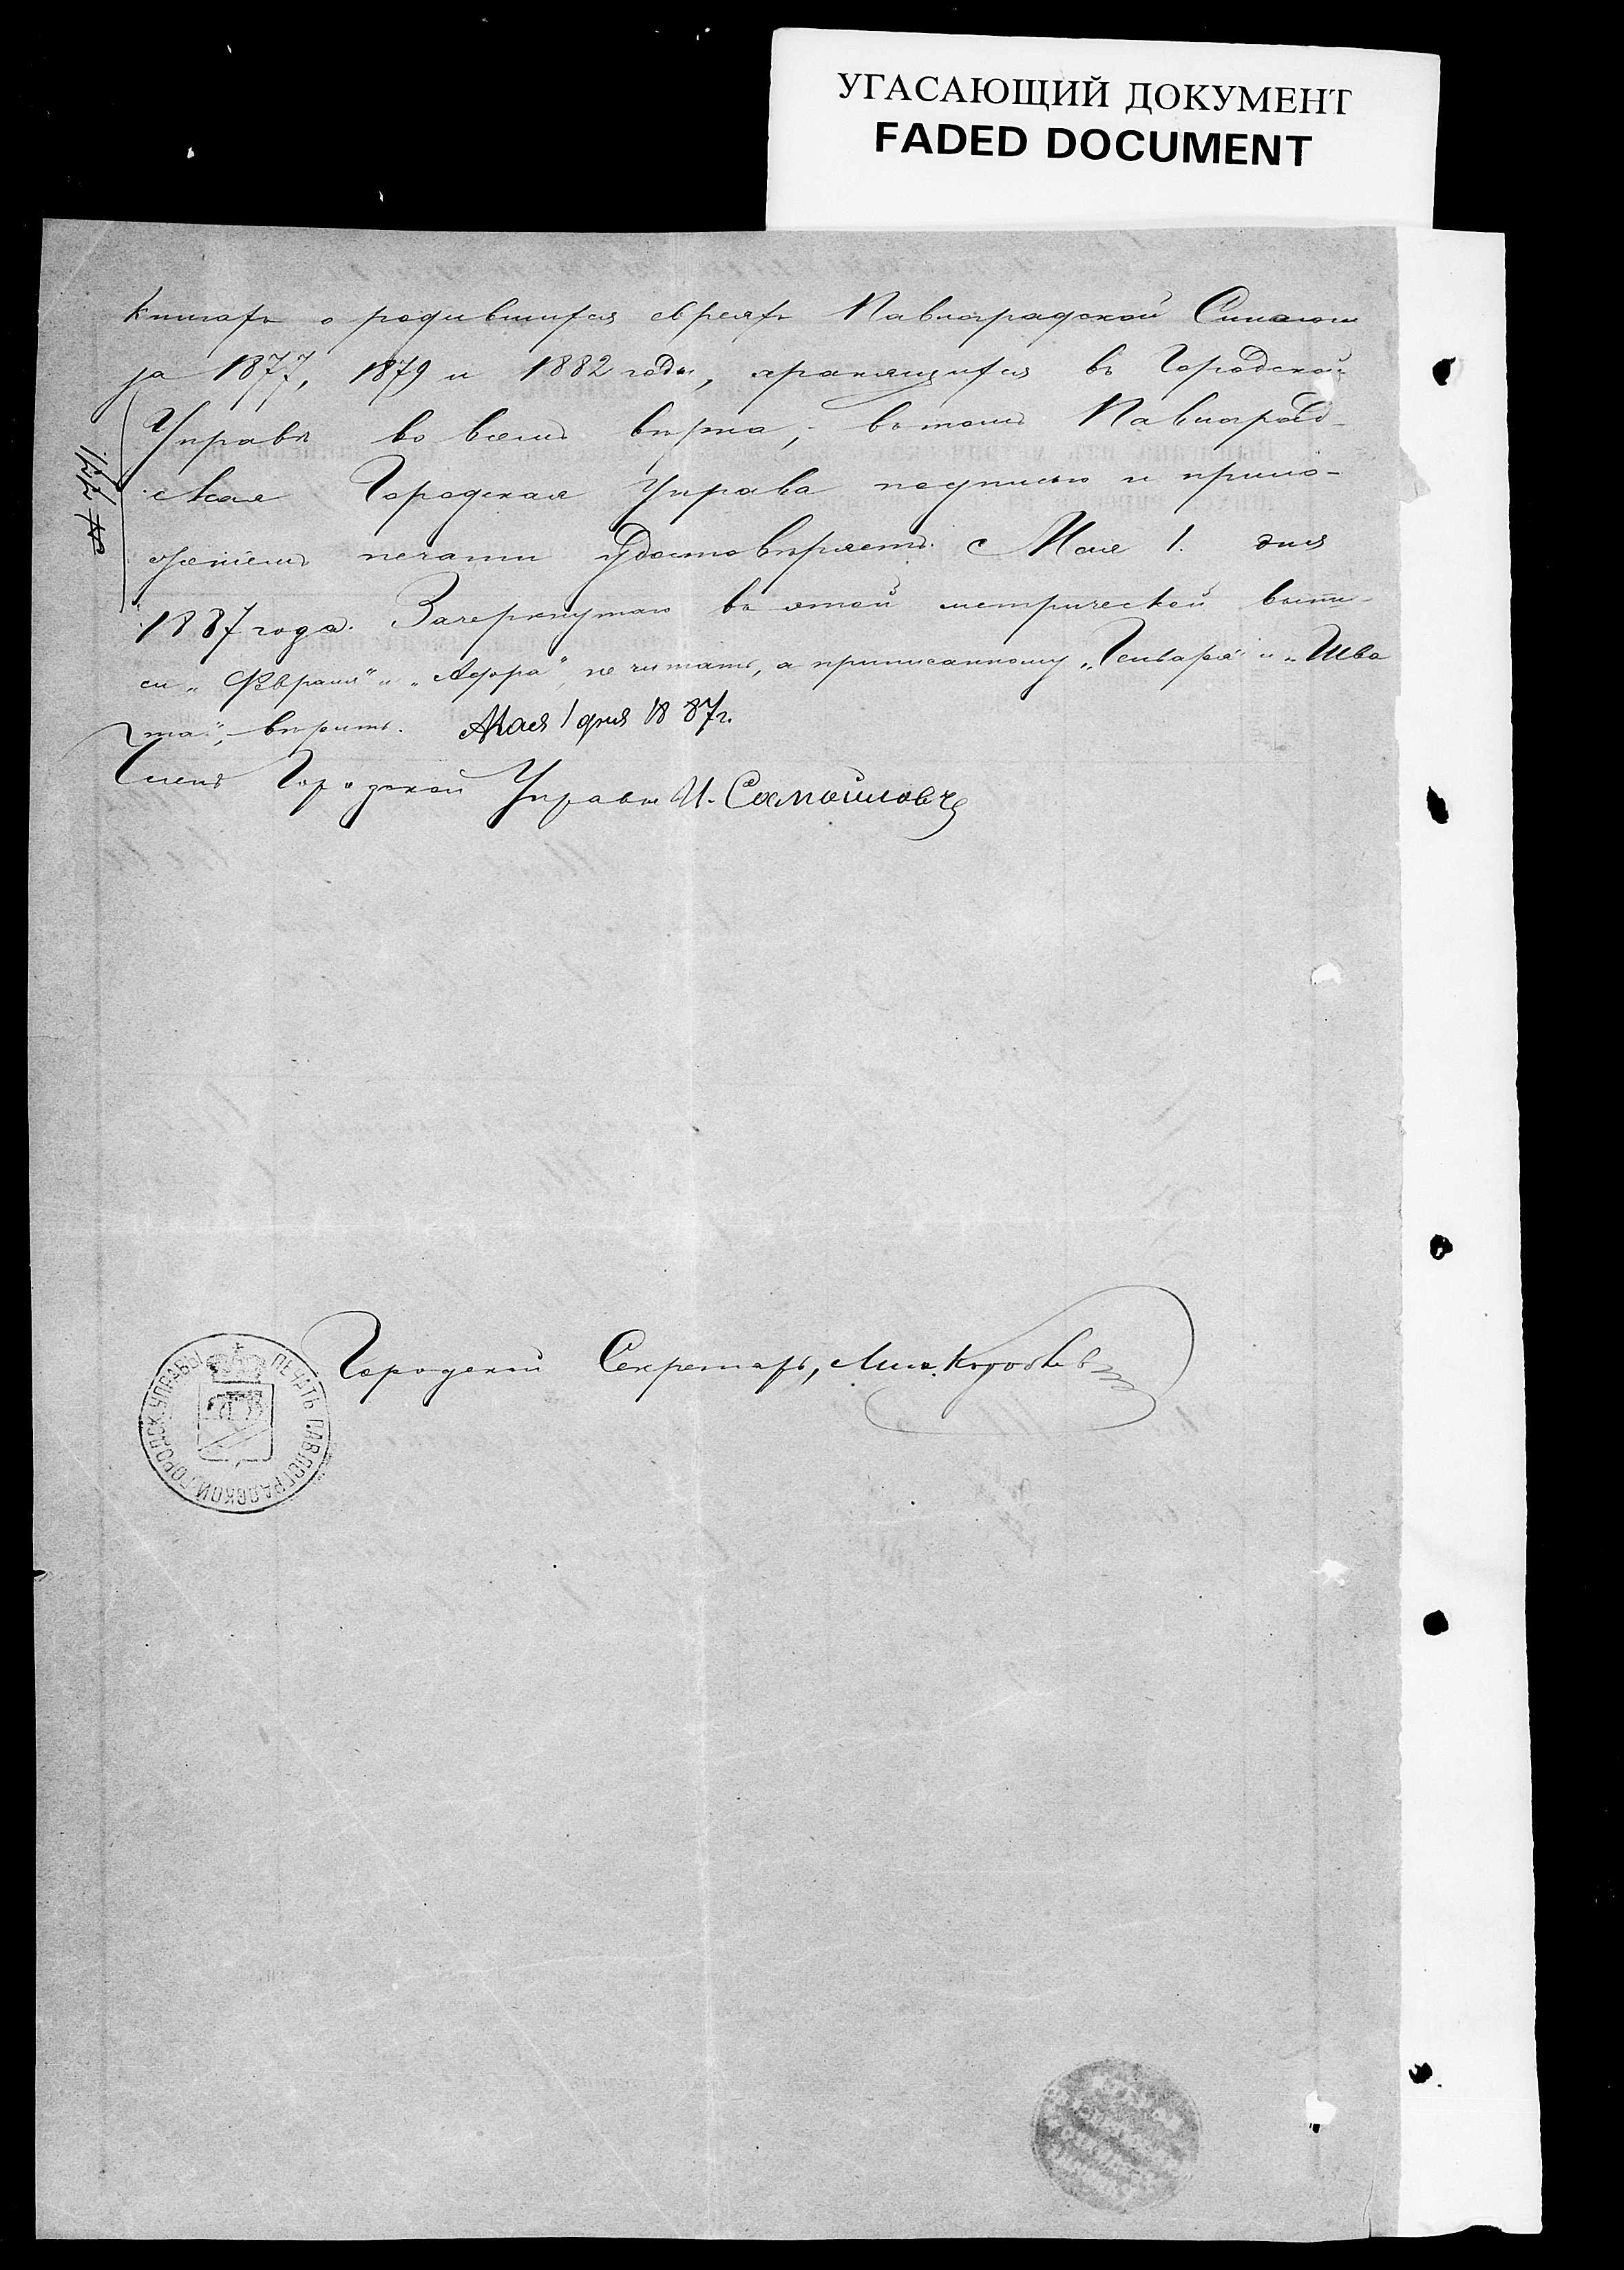 УГАСАЮЩИЙ ДОКУМЕНТ
FADED DOCUMENT
книгахъ о родившихся евреяхъ Павлоградской Синагоги
за 1877, 1879 и 1882 годы, хранящихся въ Городской
Управѣ во всемъ вѣрна, въ томъ Павлоград-
ская Городская Управа подписью и прило-
женіемъ печати удостовѣряетъ. Мая 1. дня
1887 года. Зачеркнутаго въ этой метрической выпи-
си „Февраля" и „Адара", не читать, а приписанному „Генваря" и „Шва
та", вѣрить. Мая 1 дня 1887 г.
Членъ Городской Управы И. Самойловъ
Городской Секретарь,
ПЕЧАТЬ ПАВЛОГРАДСКОЙ ГОРОДСК. УПРАВЫ